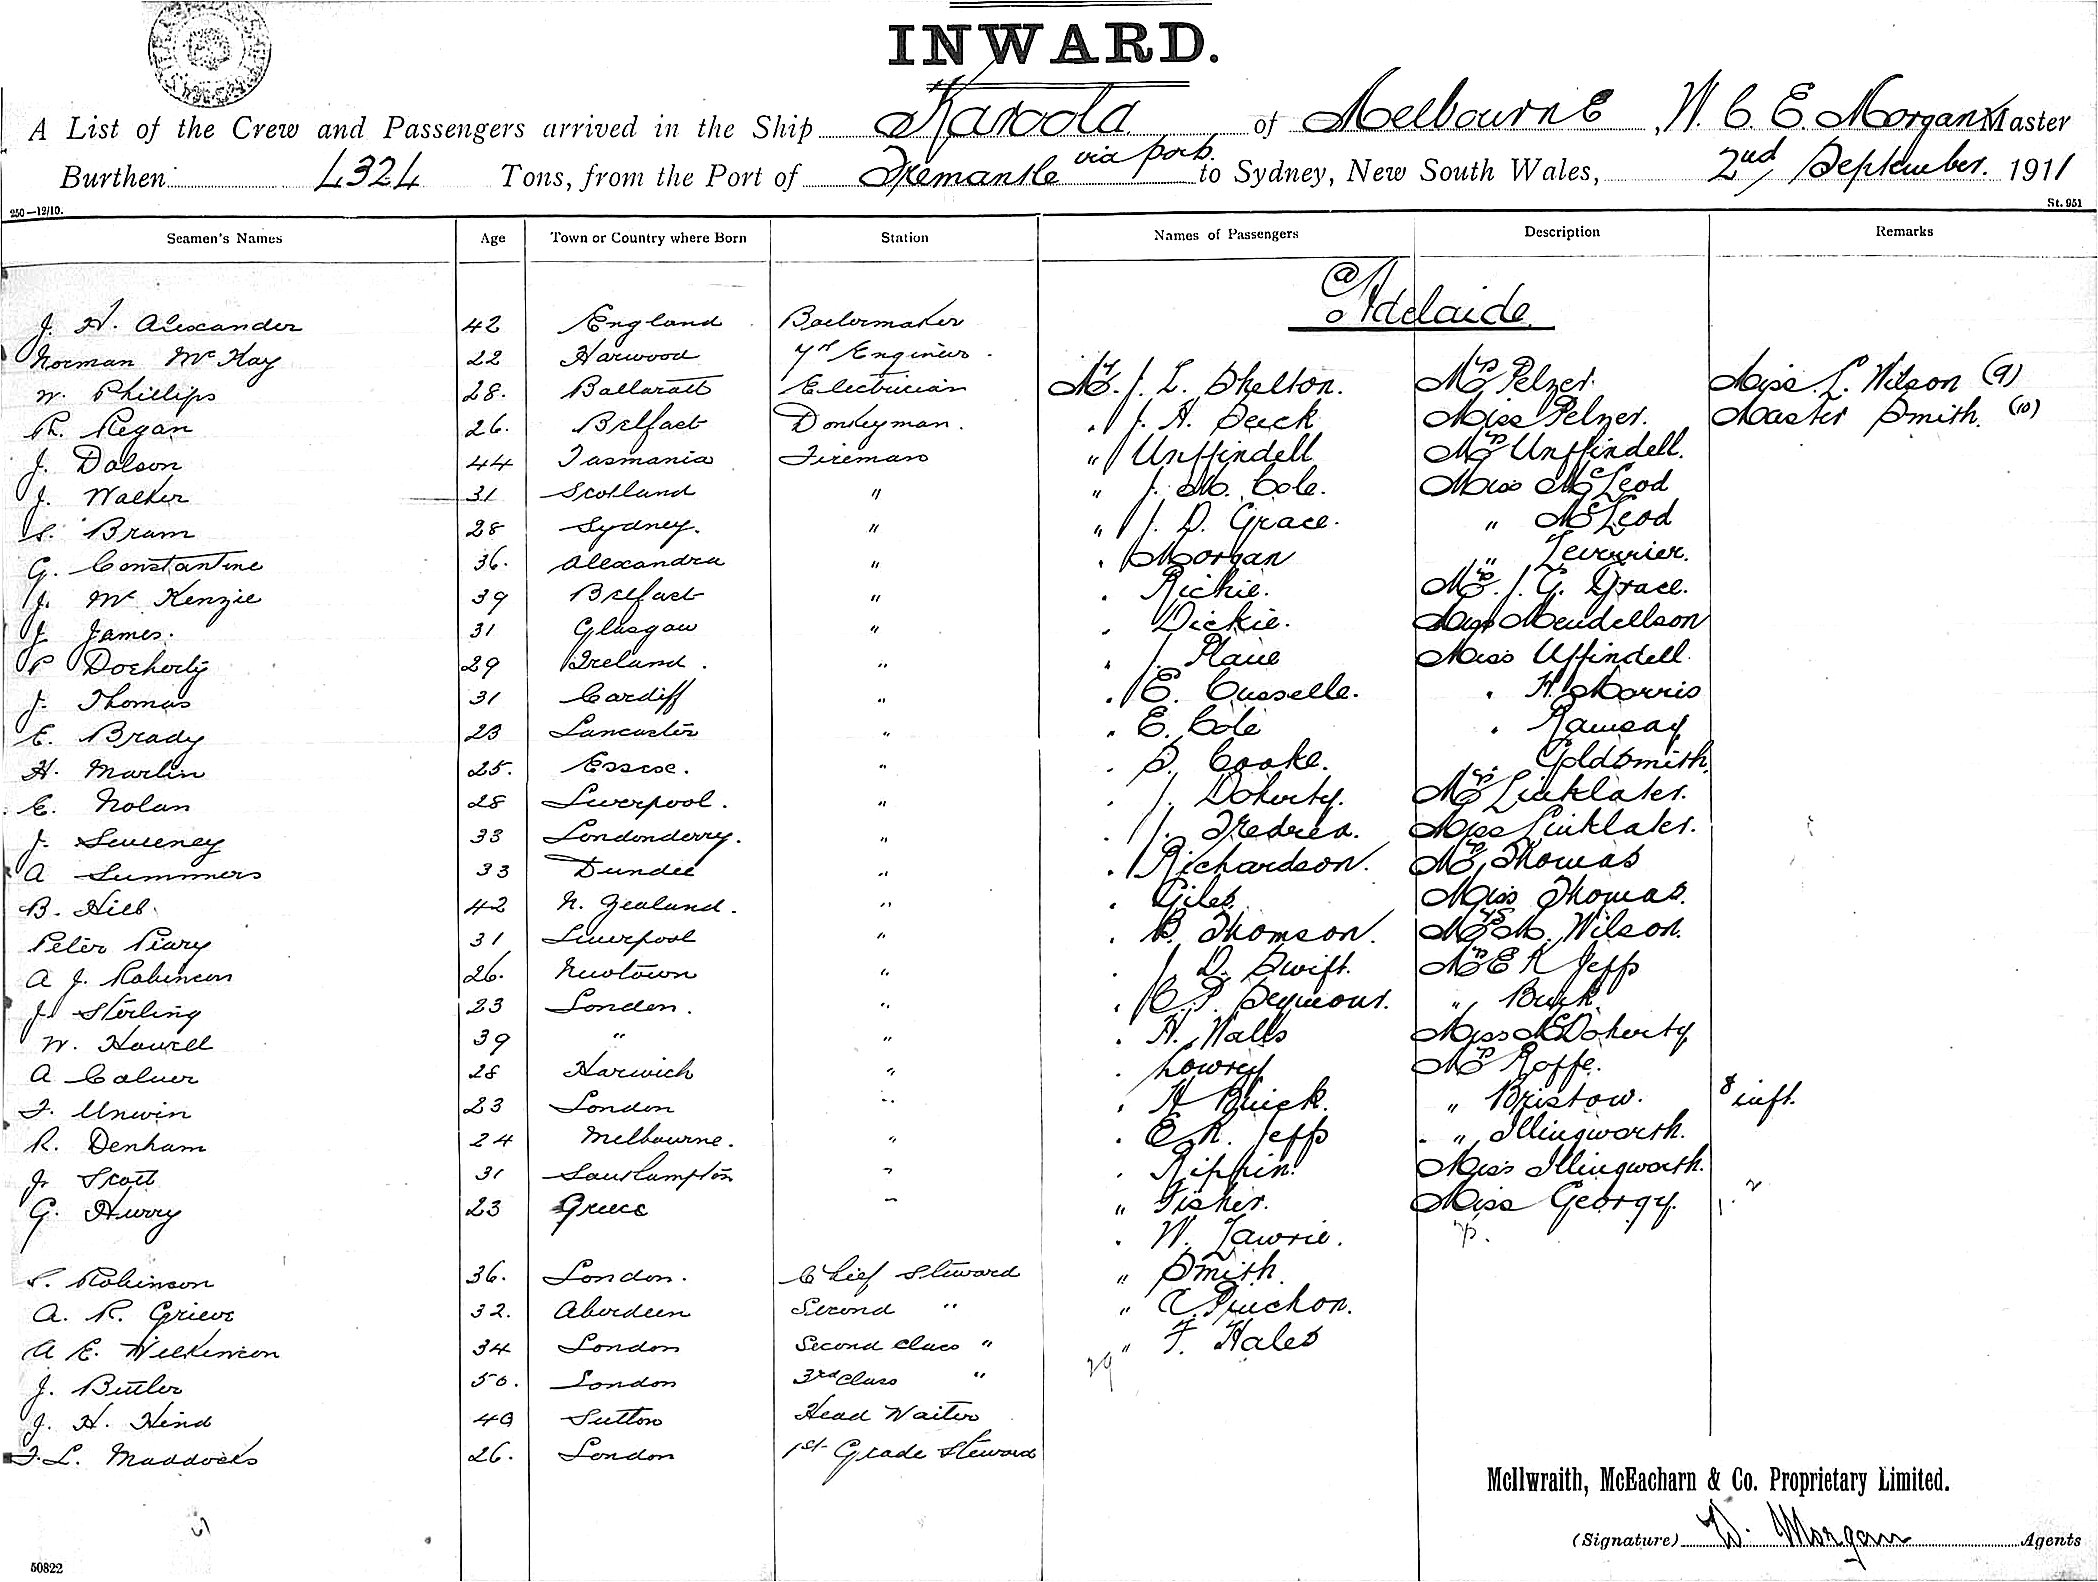 INWARD.
A List of the Crew and Passengers arrived in the Ship Karoola of Melbourne, W. C. E. Morgan Master
Burthen 4324 Tons, from the Port of Fremantle via ports to Sydney, New South Wales, 2nd September. 1911
250—12/10. St. 951
Seamen's Names Age Town or Country where Born Station Names of Passengers Description Remarks
@ Adelaide
J. H. Alexander 42 England Boilermaker
Norman McKay 22 Harwood 7th Engineer
W. Phillips 28. Ballaratt Electrician Mr. J. L. Shelton. Mrs Pelzer. Miss L. Wilson (9)
Regan 26. Belfast Donkeyman. " J. A. Miss Pelzer. Master Smith. (10)
J. Dolson 44 Tasmania Fireman " Unffindell Mrs Unffindell.
J. Walker 31 Scotland " " J. M. Cole. Miss McLeod
S. Bram 28 Sydney. " " J. D. Grace. " McLeod
G. Constantine 36. Alexandra " " Morgan "
J. McKenzie 39 Belfast " " Richie. Mrs. J. G. Grace.
J. James. 31 Glasgow " " Dickie. Miss Mendellson
P Docherty 29 Ireland. " " J. Miss Uffindell.
J. Thomas 31 Cardiff " " E. Cusselle. " H. Morris
E. Brady 23 Lancaster " " E. Cole " Ramsay
H. Martin 25. Essese. " " S. Cooke. " Goldsmith.
E. Nolan 28 Liverpool. " " J. Doherty. Mrs Linklater.
J. Sweeney 33 Londonderry. " " J. Tredrea. Miss Linklater.
A Summers 33 Dundee " " Richardson. Mrs Thomas
B. Hill 42 N. Zealand. " " Giles. Miss Thomas.
Peter Peary 31 Liverpool " " B. Thomson. Mrs M. Wilson.
A J. Robinson 26. Newtown " " J. D. Swift. Mrs E R Jeff
J. Sterling 23 London. " " C. P. Seymour. "
W. Howell 39 " " " H. Walls Miss McDoherty
A Calver 28 Harwich " " Lowrey Mrs Roffe.
F. Unwin 23 London " " H Buick. " Bristow. & inft.
R. Denham 24 Melbourne. " " E. R. Jeff " Illingworth.
J. Scott 31 Southampton " " Rippin. Miss Illingworth.
G. Hurry 23 Greece " " Fisher. Miss Georgy.
" W. Lawrie.
S. Robinson 36. London. Chief Steward " Smith.
A. R. Grieve 32. Aberdeen Second " " C.
A E. Wilkinson 34 London Second class " " F. Hales
29
J. Butler 50. London 3rd Class "
J. H. Hind 49 Sutton Head Waiter
F. L. Maddocks 26. London 1st Grade Steward
McIlwraith, McEacharn & Co. Proprietary Limited.
(Signature) W. Morgan Agents
50822